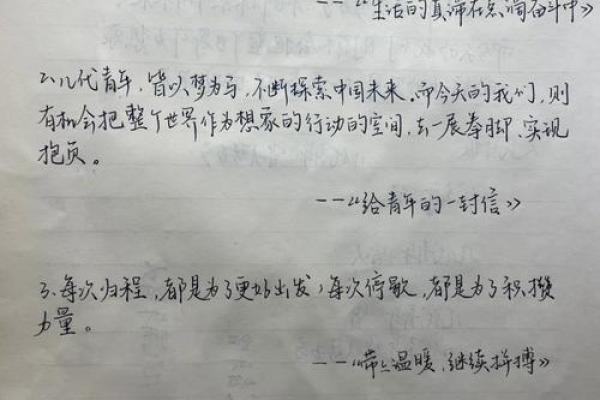 --《生活的真谛在点滴奋斗中》
2、几代青年，皆以梦为马，不断探索中国未来。而今天的我们，则
有机会把整个世界作为想象的行动的空间，去一展拳脚、实现
抱负。
--《给青年的一封信》
3、每次归程，都是为了更好出发；每次停歇，都是为了积攒
力量。
--《带上温暖，继续拼搏》